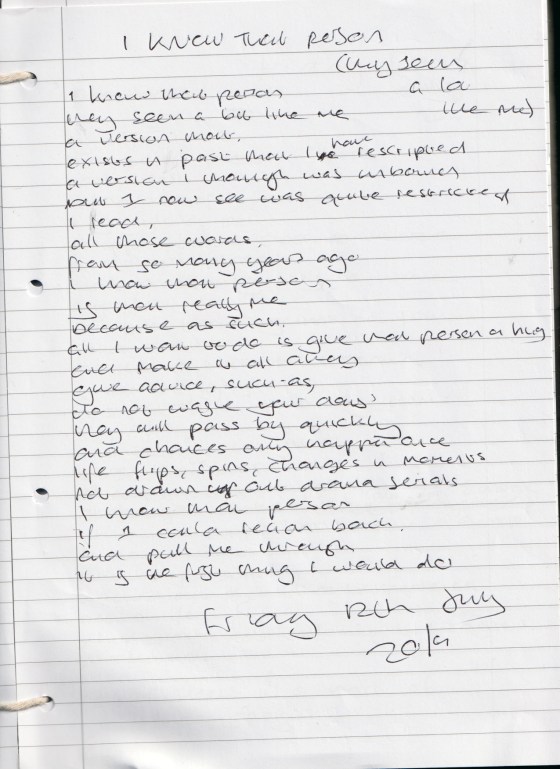 I know that person
(they seem
a lot
like me)
I know that person
they seem a bit like me
a version that,
exists in past that I've have rescripted
a version I though was unbound
but I now see was quite restricted
I read,
all those words,
from so many years ago
I know that person
is that really me
because as such,
all I want to do is give that person a hug
and make it all okay
give advice, such as,
do not waste your days
they will pass by quickly
and chances only happen once
life flips, spins, changes in moments
not drawn out drama serials
I know that person
if I could reach back.
and pull me through
it is the first thing I would do
Friday 12th July
2019